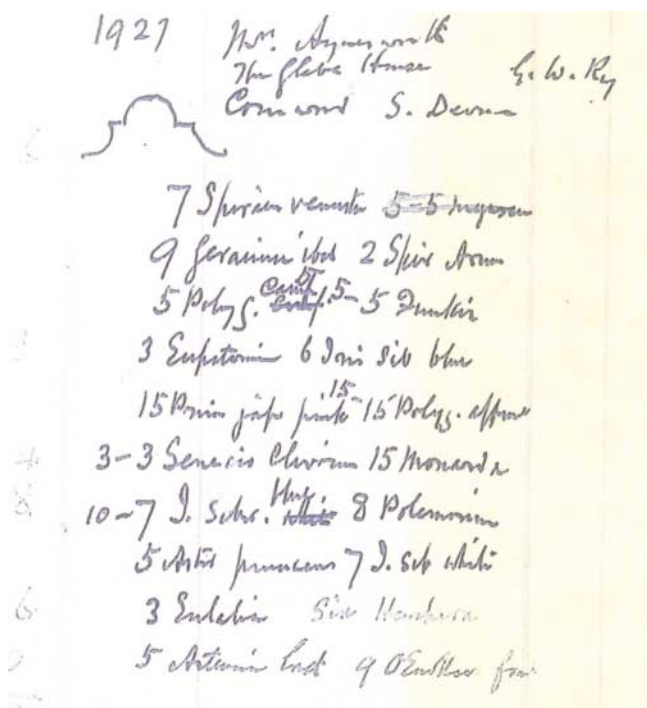 1927 Mrs. Aynesworth
The Glebe House G. W. Ry
Cornwood S. Devon
7 Spiraea venusta 5-5
9 Geranium ibet 2 Spir Arun
5 Polyg. Camp. 5-5 Funkia
3 Eupatorium 6 Iris Sib blue
15 jap pink 15 15 Polyg. affine
3-3 Senecio Clivorum 15 Monarda
10-7 I. Sibr. blue 8 Polemonium
5 Aster puniceus 7 I. sib white
3 Eulalia
5 Artemis lact 9